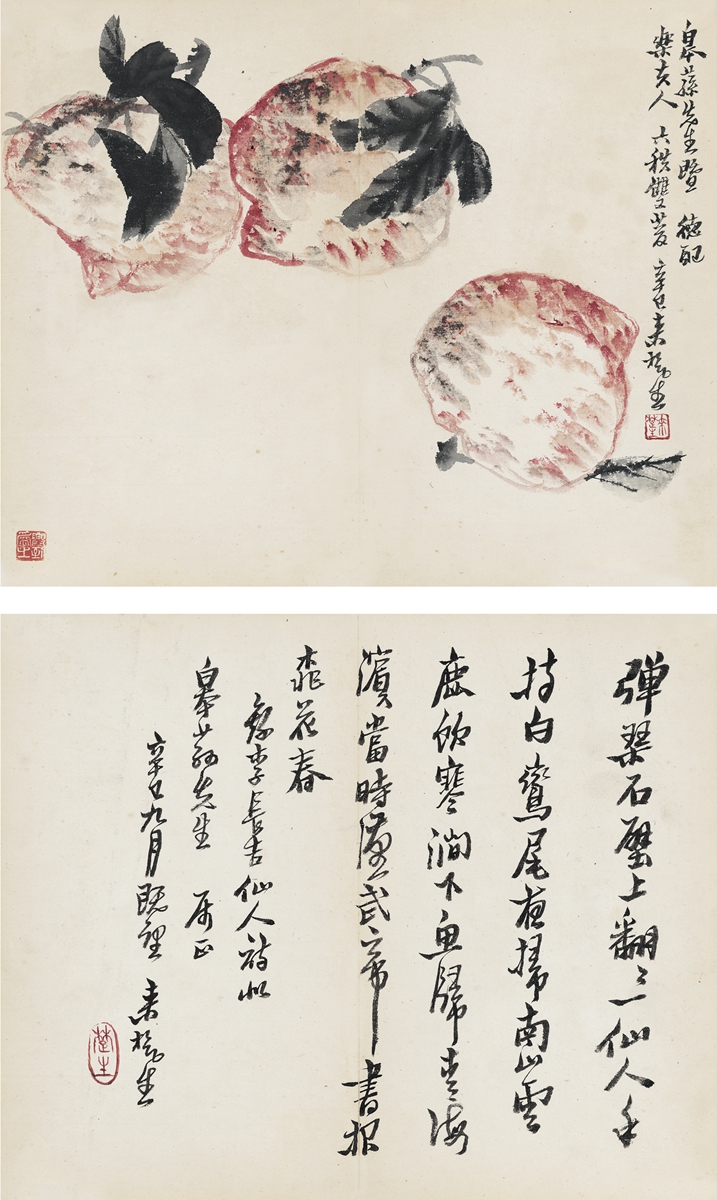 皋蓀先生暨 德配
樂夫人 六秩雙慶 辛巳 来楚生
彈琴石壁上翻〻一仙人手
持白鸞尾夜掃南山雲
鹿飲寒澗下魚歸清海
濱當時漢武帝書報
桃花春
錄李長吉仙人詩似
皋蓀先生 屬正
辛巳九月既望 来楚生
楚生